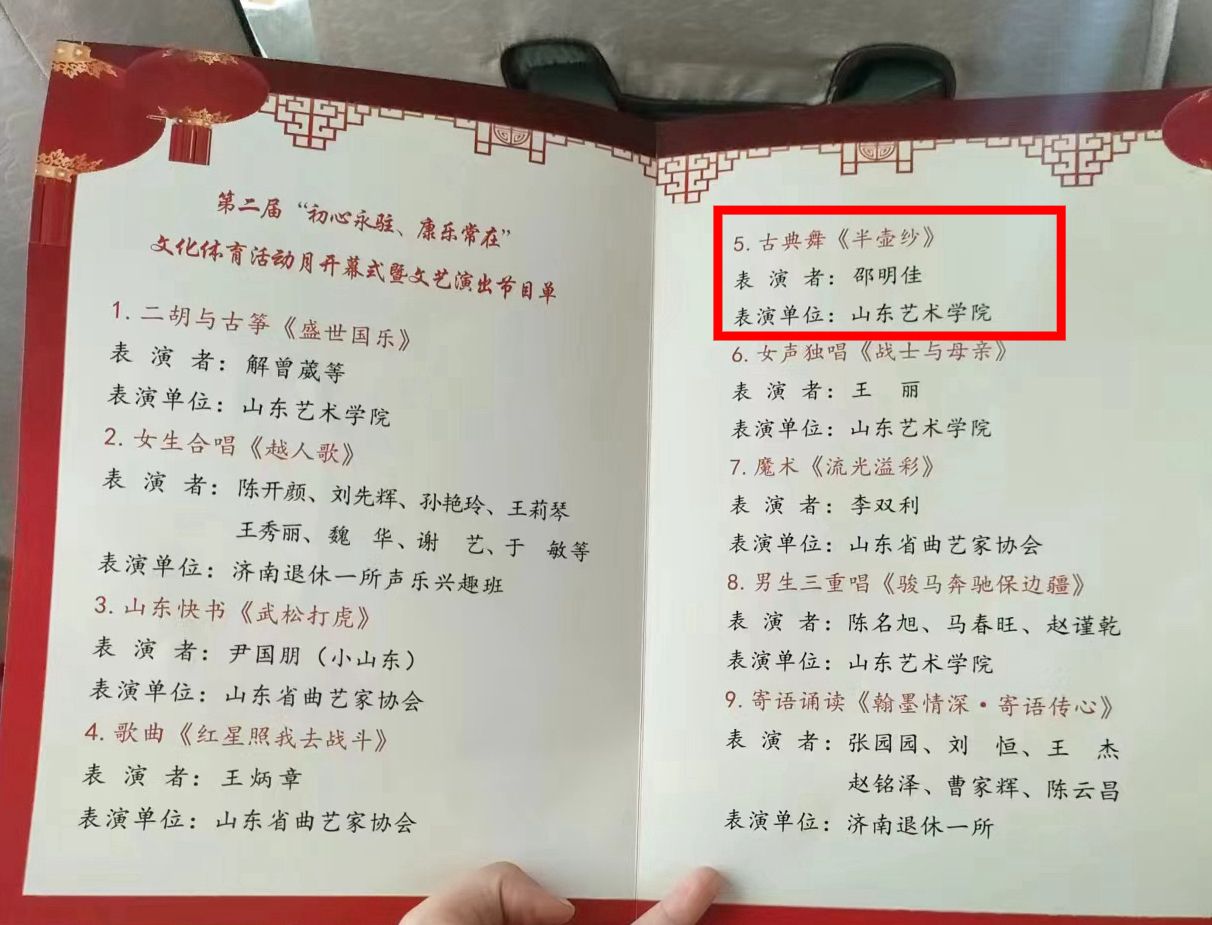 第二届“初心永驻、康乐常在”
文化体育活动月开幕式暨文艺演出节目单
1. 二胡与古筝《盛世国乐》
表 演 者：解曾葳等
表演单位：山东艺术学院
2. 女生合唱《越人歌》
表 演 者：陈开颜、刘先辉、孙艳玲、王莉琴
王秀丽、魏 华、谢 艺、于 敏等
表演单位：济南退休一所声乐兴趣班
3. 山东快书《武松打虎》
表 演 者：尹国朋（小山东）
表演单位：山东省曲艺家协会
4. 歌曲《红星照我去战斗》
表 演 者：王炳章
表演单位：山东省曲艺家协会
5. 古典舞《半壶纱》
表 演 者：邵明佳
表演单位：山东艺术学院
6. 女声独唱《战士与母亲》
表 演 者：王 丽
表演单位：山东艺术学院
7. 魔术《流光溢彩》
表 演 者：李双利
表演单位：山东省曲艺家协会
8. 男生三重唱《骏马奔驰保边疆》
表 演 者：陈名旭、马春旺、赵谨乾
表演单位：山东艺术学院
9. 寄语诵读《翰墨情深·寄语传心》
表 演 者：张园园、刘 恒、王 杰
赵铭泽、曹家辉、陈云昌
表演单位：济南退休一所